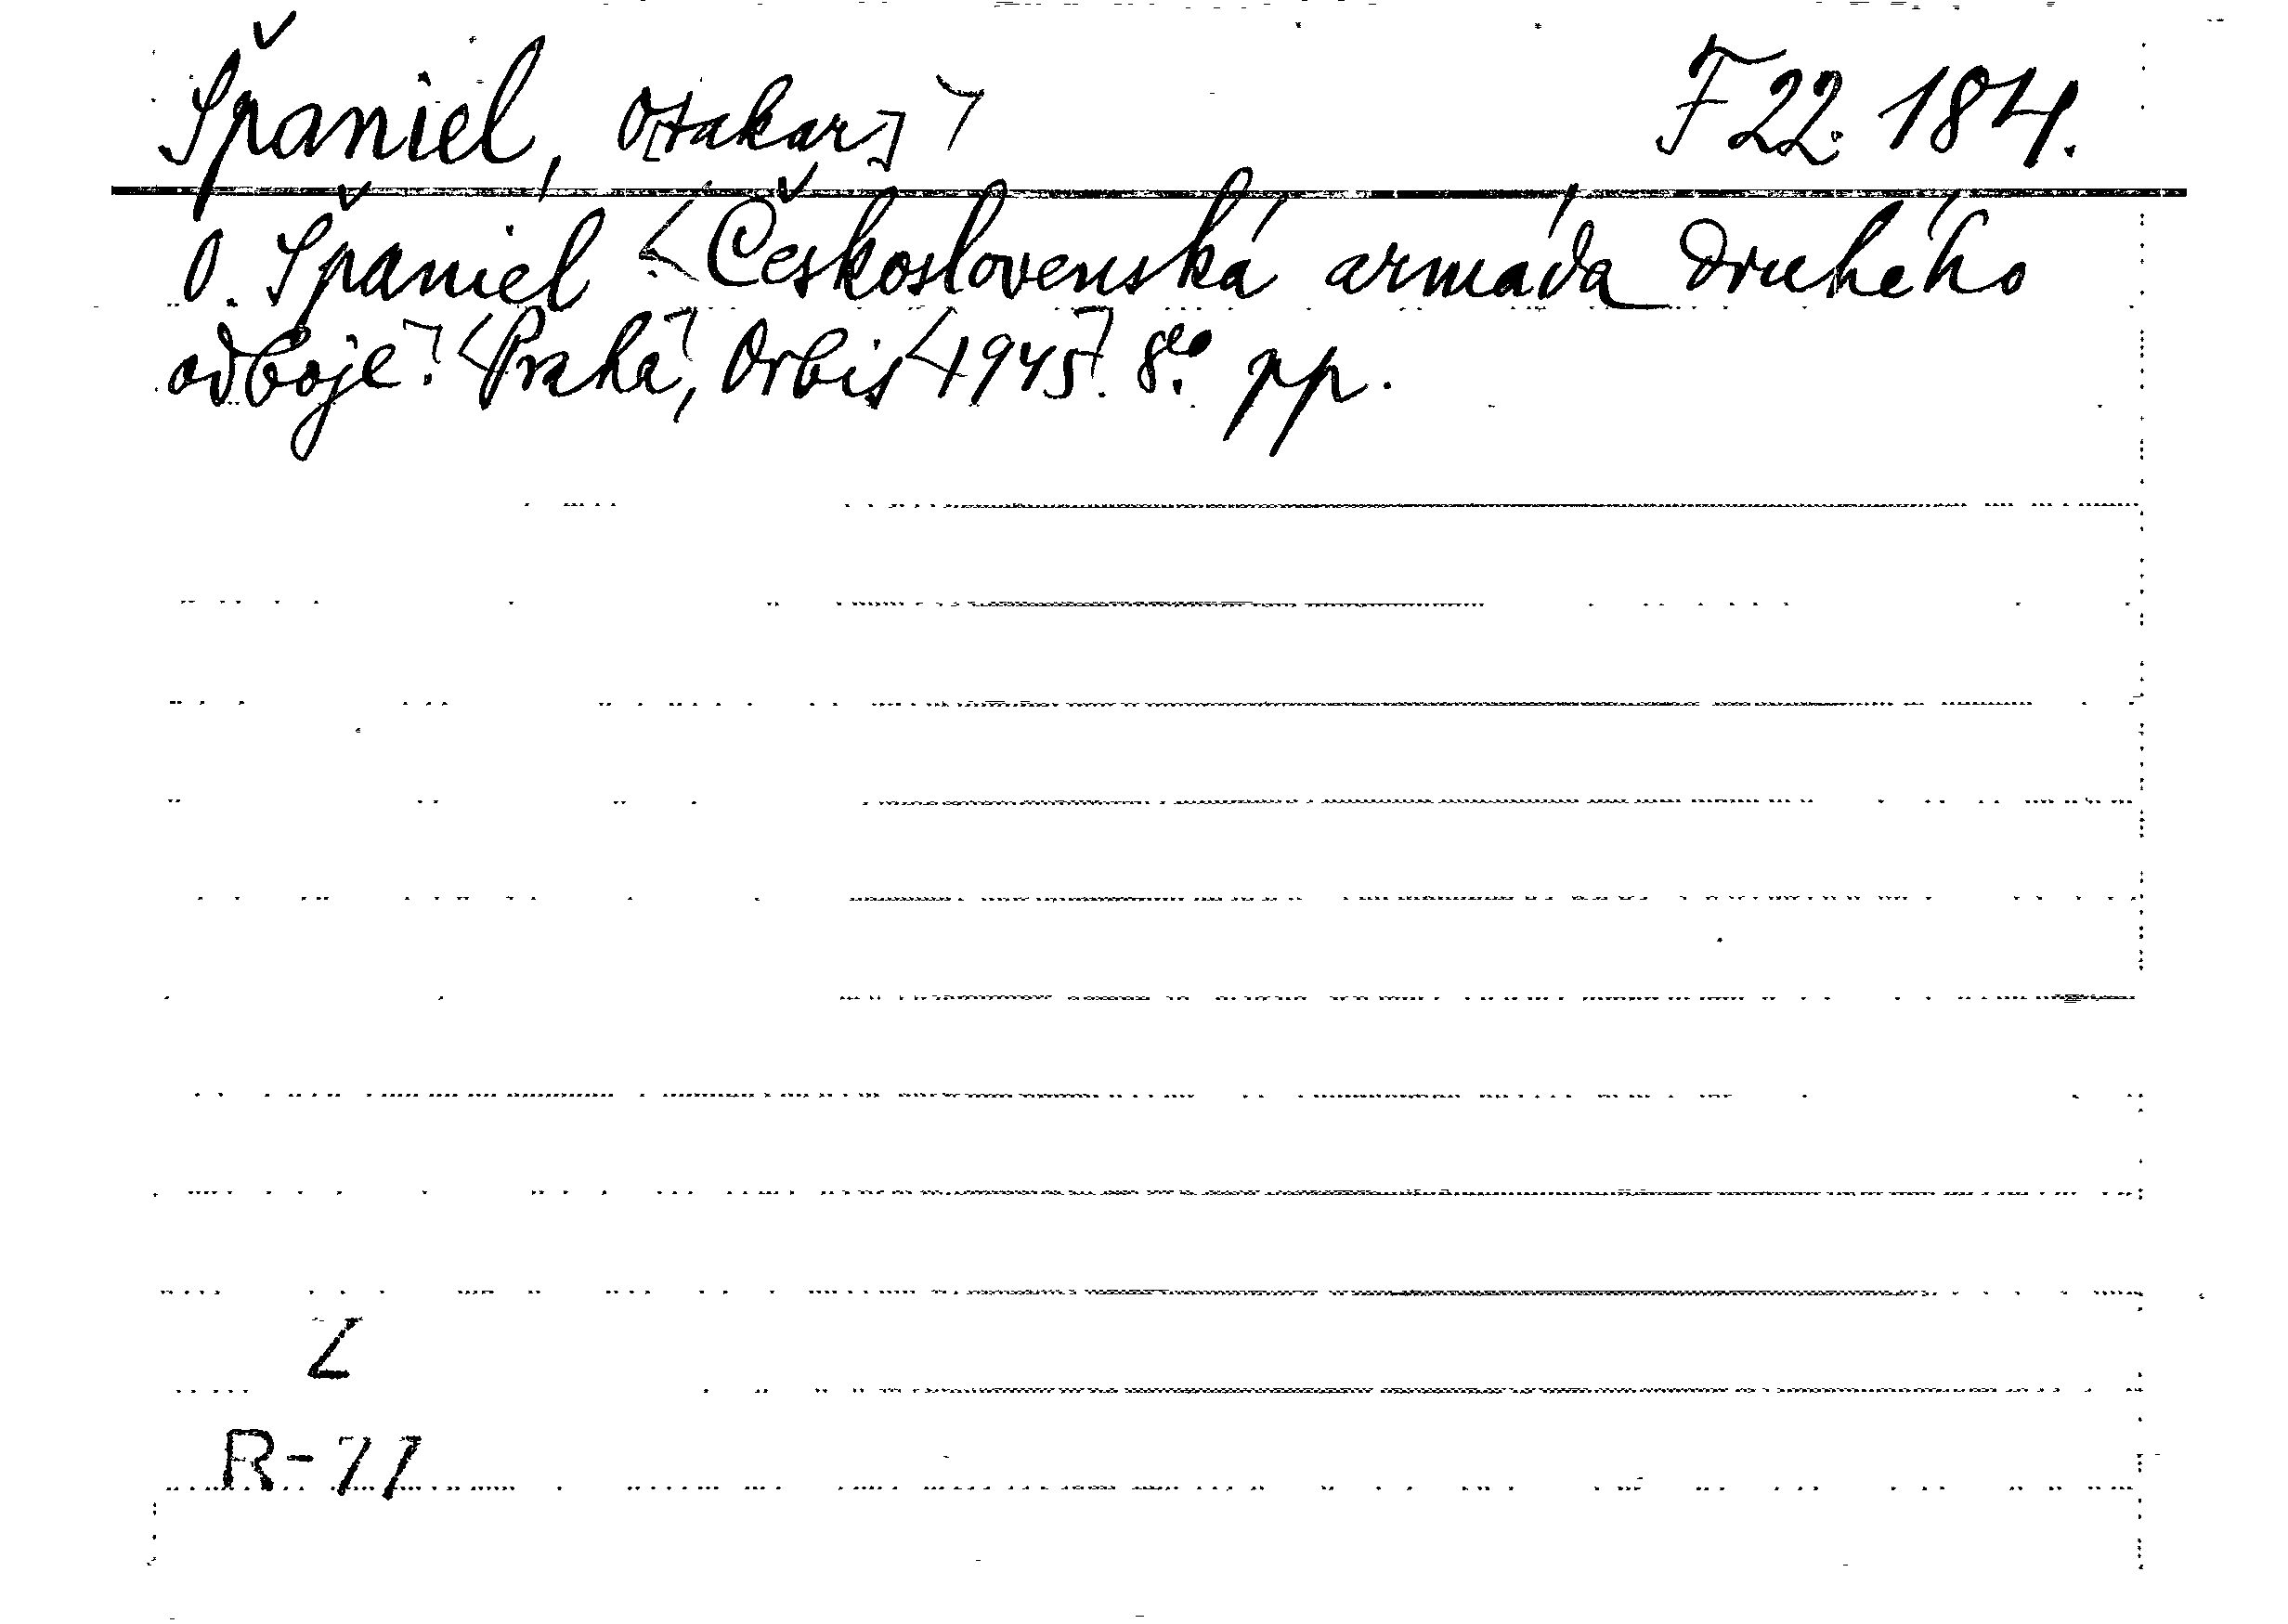 Španiel, O[takar] ⌉ F 22. 184.
O. Španiel <Československá armáda druhého
odboje⌉. <Praha⌉, Orbis <1945⌉. 8eo. pp.
Z
R-77